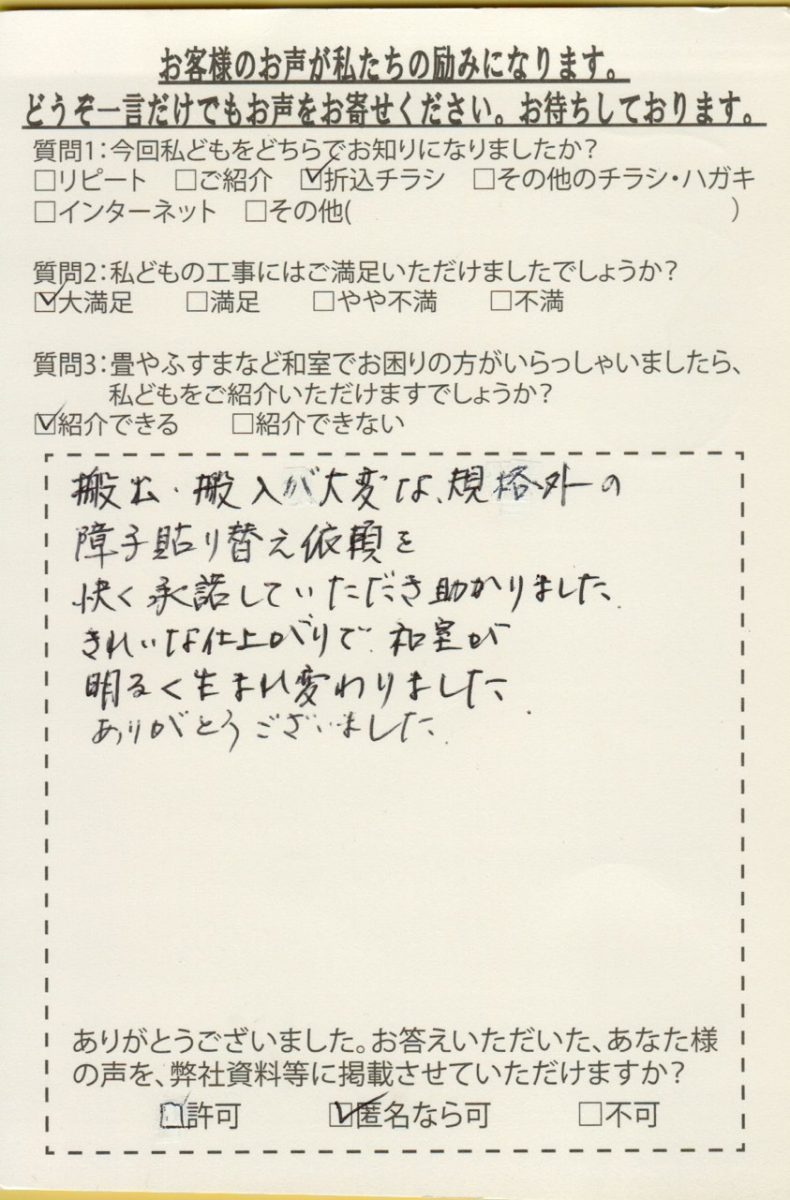 お客様のお声が私たちの励みになります。
どうぞ一言だけでもお声をお寄せください。お待ちしております。
質問1：今回私どもをどちらでお知りになりましたか？
□リピート　□ご紹介　☑折込チラシ　□その他のチラシ・ハガキ
□インターネット　□その他(　　　　　　　　　　)
質問2：私どもの工事にはご満足いただけましたでしょうか？
☑大満足　□満足　□やや不満　□不満
質問3：畳やふすまなど和室でお困りの方がいらっしゃいましたら、
私どもをご紹介いただけますでしょうか？
☑紹介できる　□紹介できない
搬出・搬入が大変な、規格外の
障子貼り替え依頼を
快く承諾していただき助かりました。
きれいな仕上がりで、和室が
明るく生まれ変わりました。
ありがとうございました。
ありがとうございました。お答えいただいた、あなた様
の声を、弊社資料等に掲載させていただけますか？
□許可　☑匿名なら可　□不可